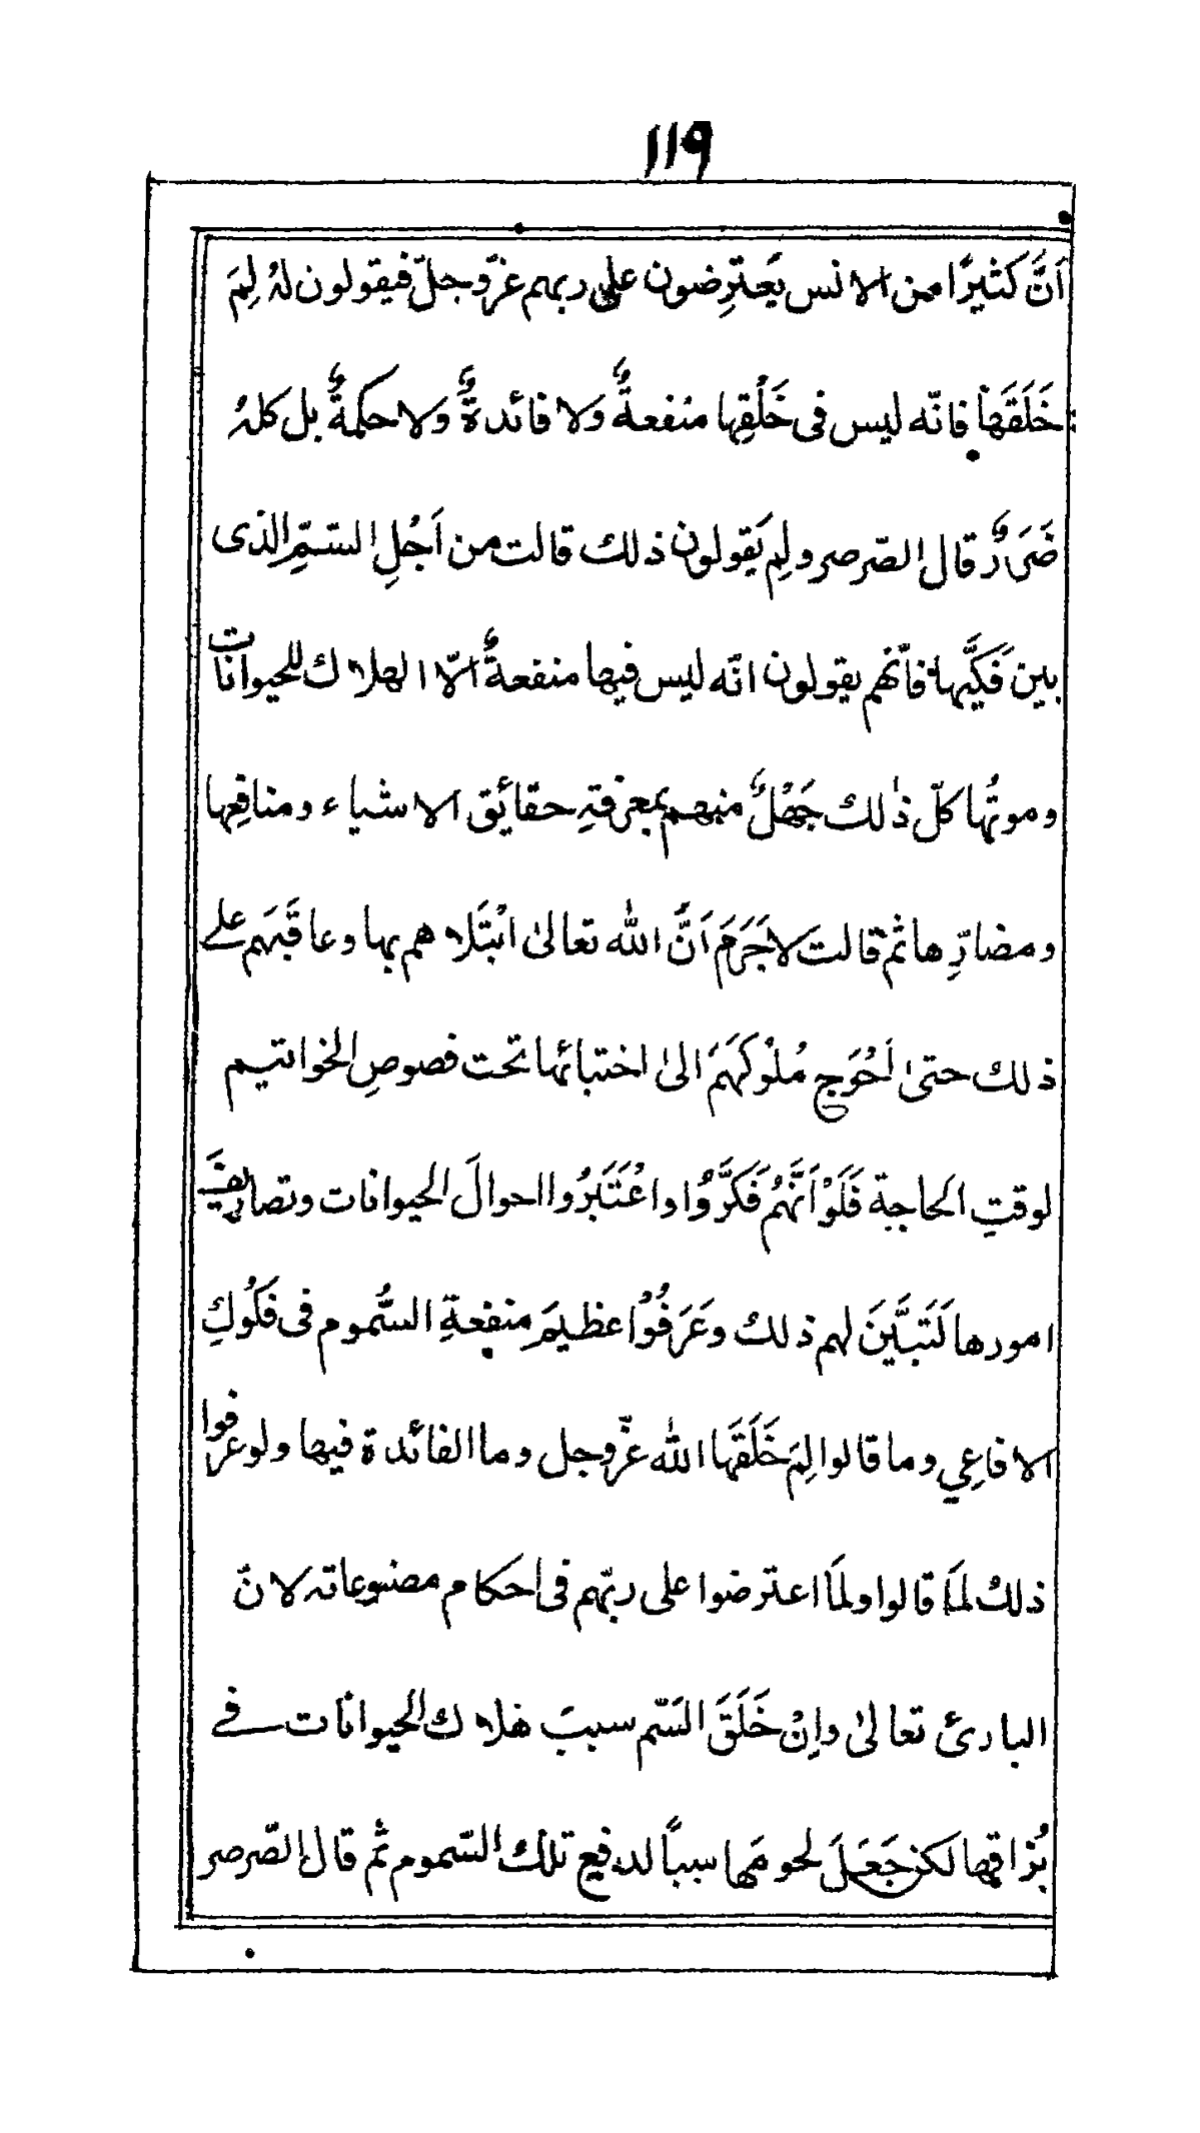 ١١٩
اَنَّ كثيرًا من الانس يَعترِضون على ربهم عزّوجلّ فيقولون لهُ لِمَ
خَلَقَهَا فانّه ليس فى خَلْقِها منفعةٌ ولا فائدةٌ ولا حكمةٌ بل كلهُ
ضَرَرٌ قال الصّرصر ولِم يَقولون ذلك قالت من اَجْلِ السّمِّ الذى
بين فَكَّيها فانّهم يقولون انّه ليس فيها منفعةٌ الّا الهلاك للحيوانات
وموتُها كلّ ذٰلك جَهْلٌ منهم بمعرفةِ حقائق الاشياء ومنافِعِها
ومضارِّها ثم قالت لاجَرَمَ اَنَّ الله تعالىٰ ابْتَلاهم بها وعاقَبَهم على
ذلك حتىٰ اَحْوَج مُلُوكَهَمَ الىٰ اختبائها تحت فصوصِ الخواتيم
لوقتِ الحاجة فَلَوْ اَنَّهُم فَكَّرُوا واعْتَبَرُوا احوالَ الحيوانات وتصاريفَ
امورها لَتَبَيَّنَ لهم ذلك وعَرَفُوْا عظيمَ منفعةِ السُّموم فى فكُوكِ
الافاعِي وما قالوا لِمَ خَلَقَهَا الله عزّوجل وما الفائدة فيها ولوعرفوا
ذلكُ لمَا قالوا ولمَا اعترضوا على ربّهم فى احكام مصنوعاته لانّ
البارئ تعالىٰ واِنْ خَلَقَ السَمّ سببَ هلاك الحيوانات فى
بُزاقِها لكن جَعَلَ لحومَها سببًا لدفع تلك السّموم ثم قال الصّرصر